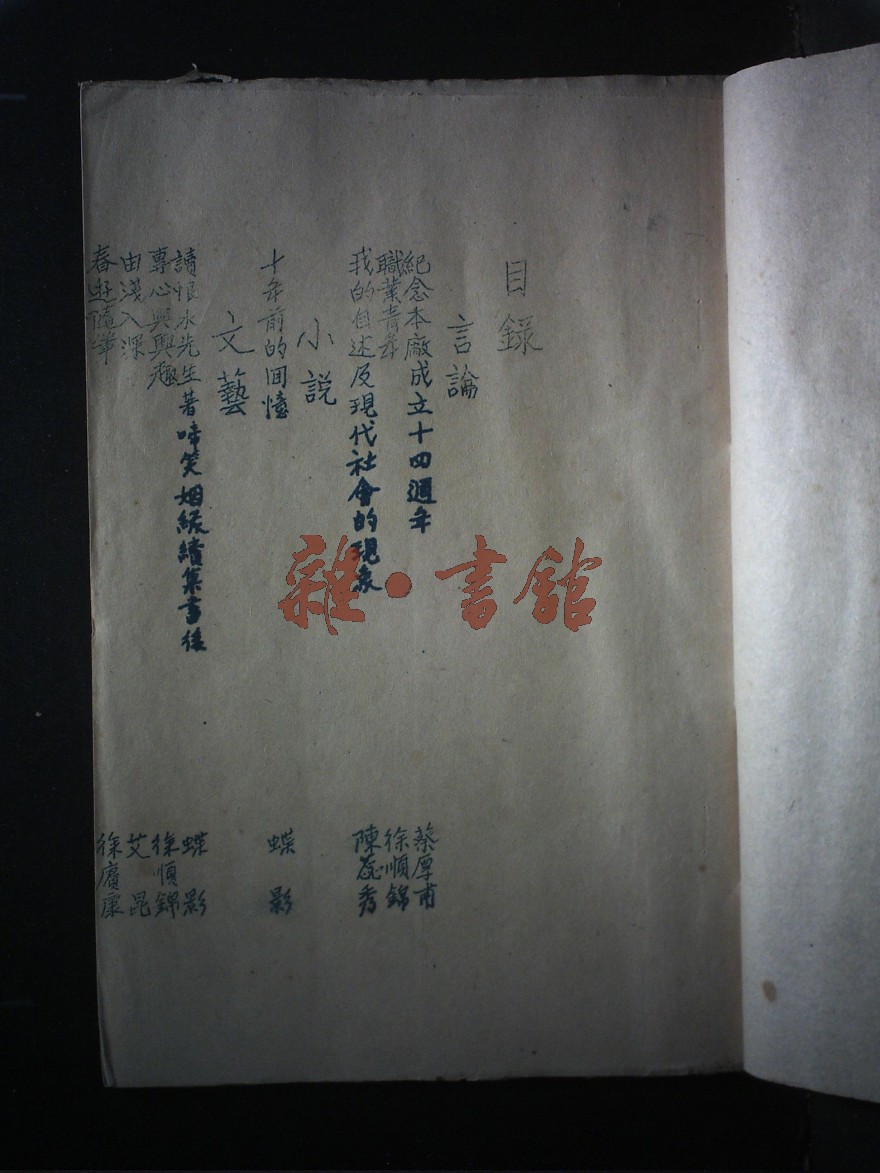 目錄
言論
紀念本廠成立十四週年 蔡厚甫
職業青年 徐順錦
我的自述及現代社會的現象 陳蕊秀
小説
十年前的回憶 蝶影
文藝
讀恨水先生著啼笑姻緣續集書後 蝶影
專心與興趣 徐順錦
由淺入深 艾昆
春遊隨筆 徐賡
雜·書館